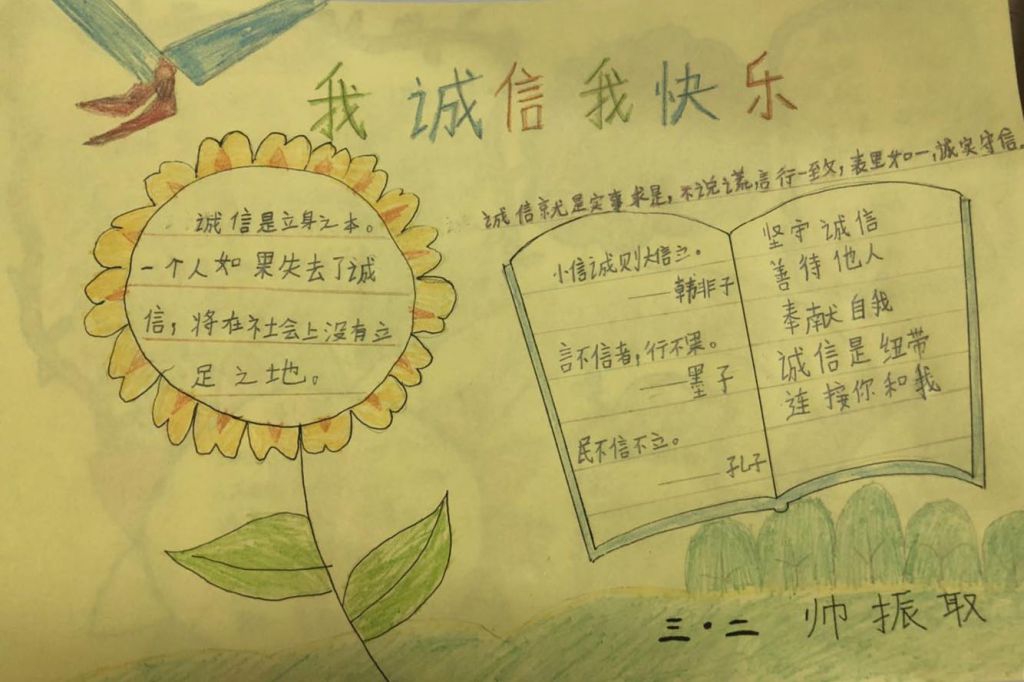 我诚信我快乐
诚信就是实事求是，不说谎，言行一致，表里如一，诚实守信。
诚信是立身之本。
一个人如果失去了诚
信，将在社会上没有立
足之地。
小信诚则大信立。
——韩非子
言不信者，行不果。
——墨子
民不信不立。
——孔子
坚守诚信
善待他人
奉献自我
诚信是纽带
连接你和我
三·二 帅振取